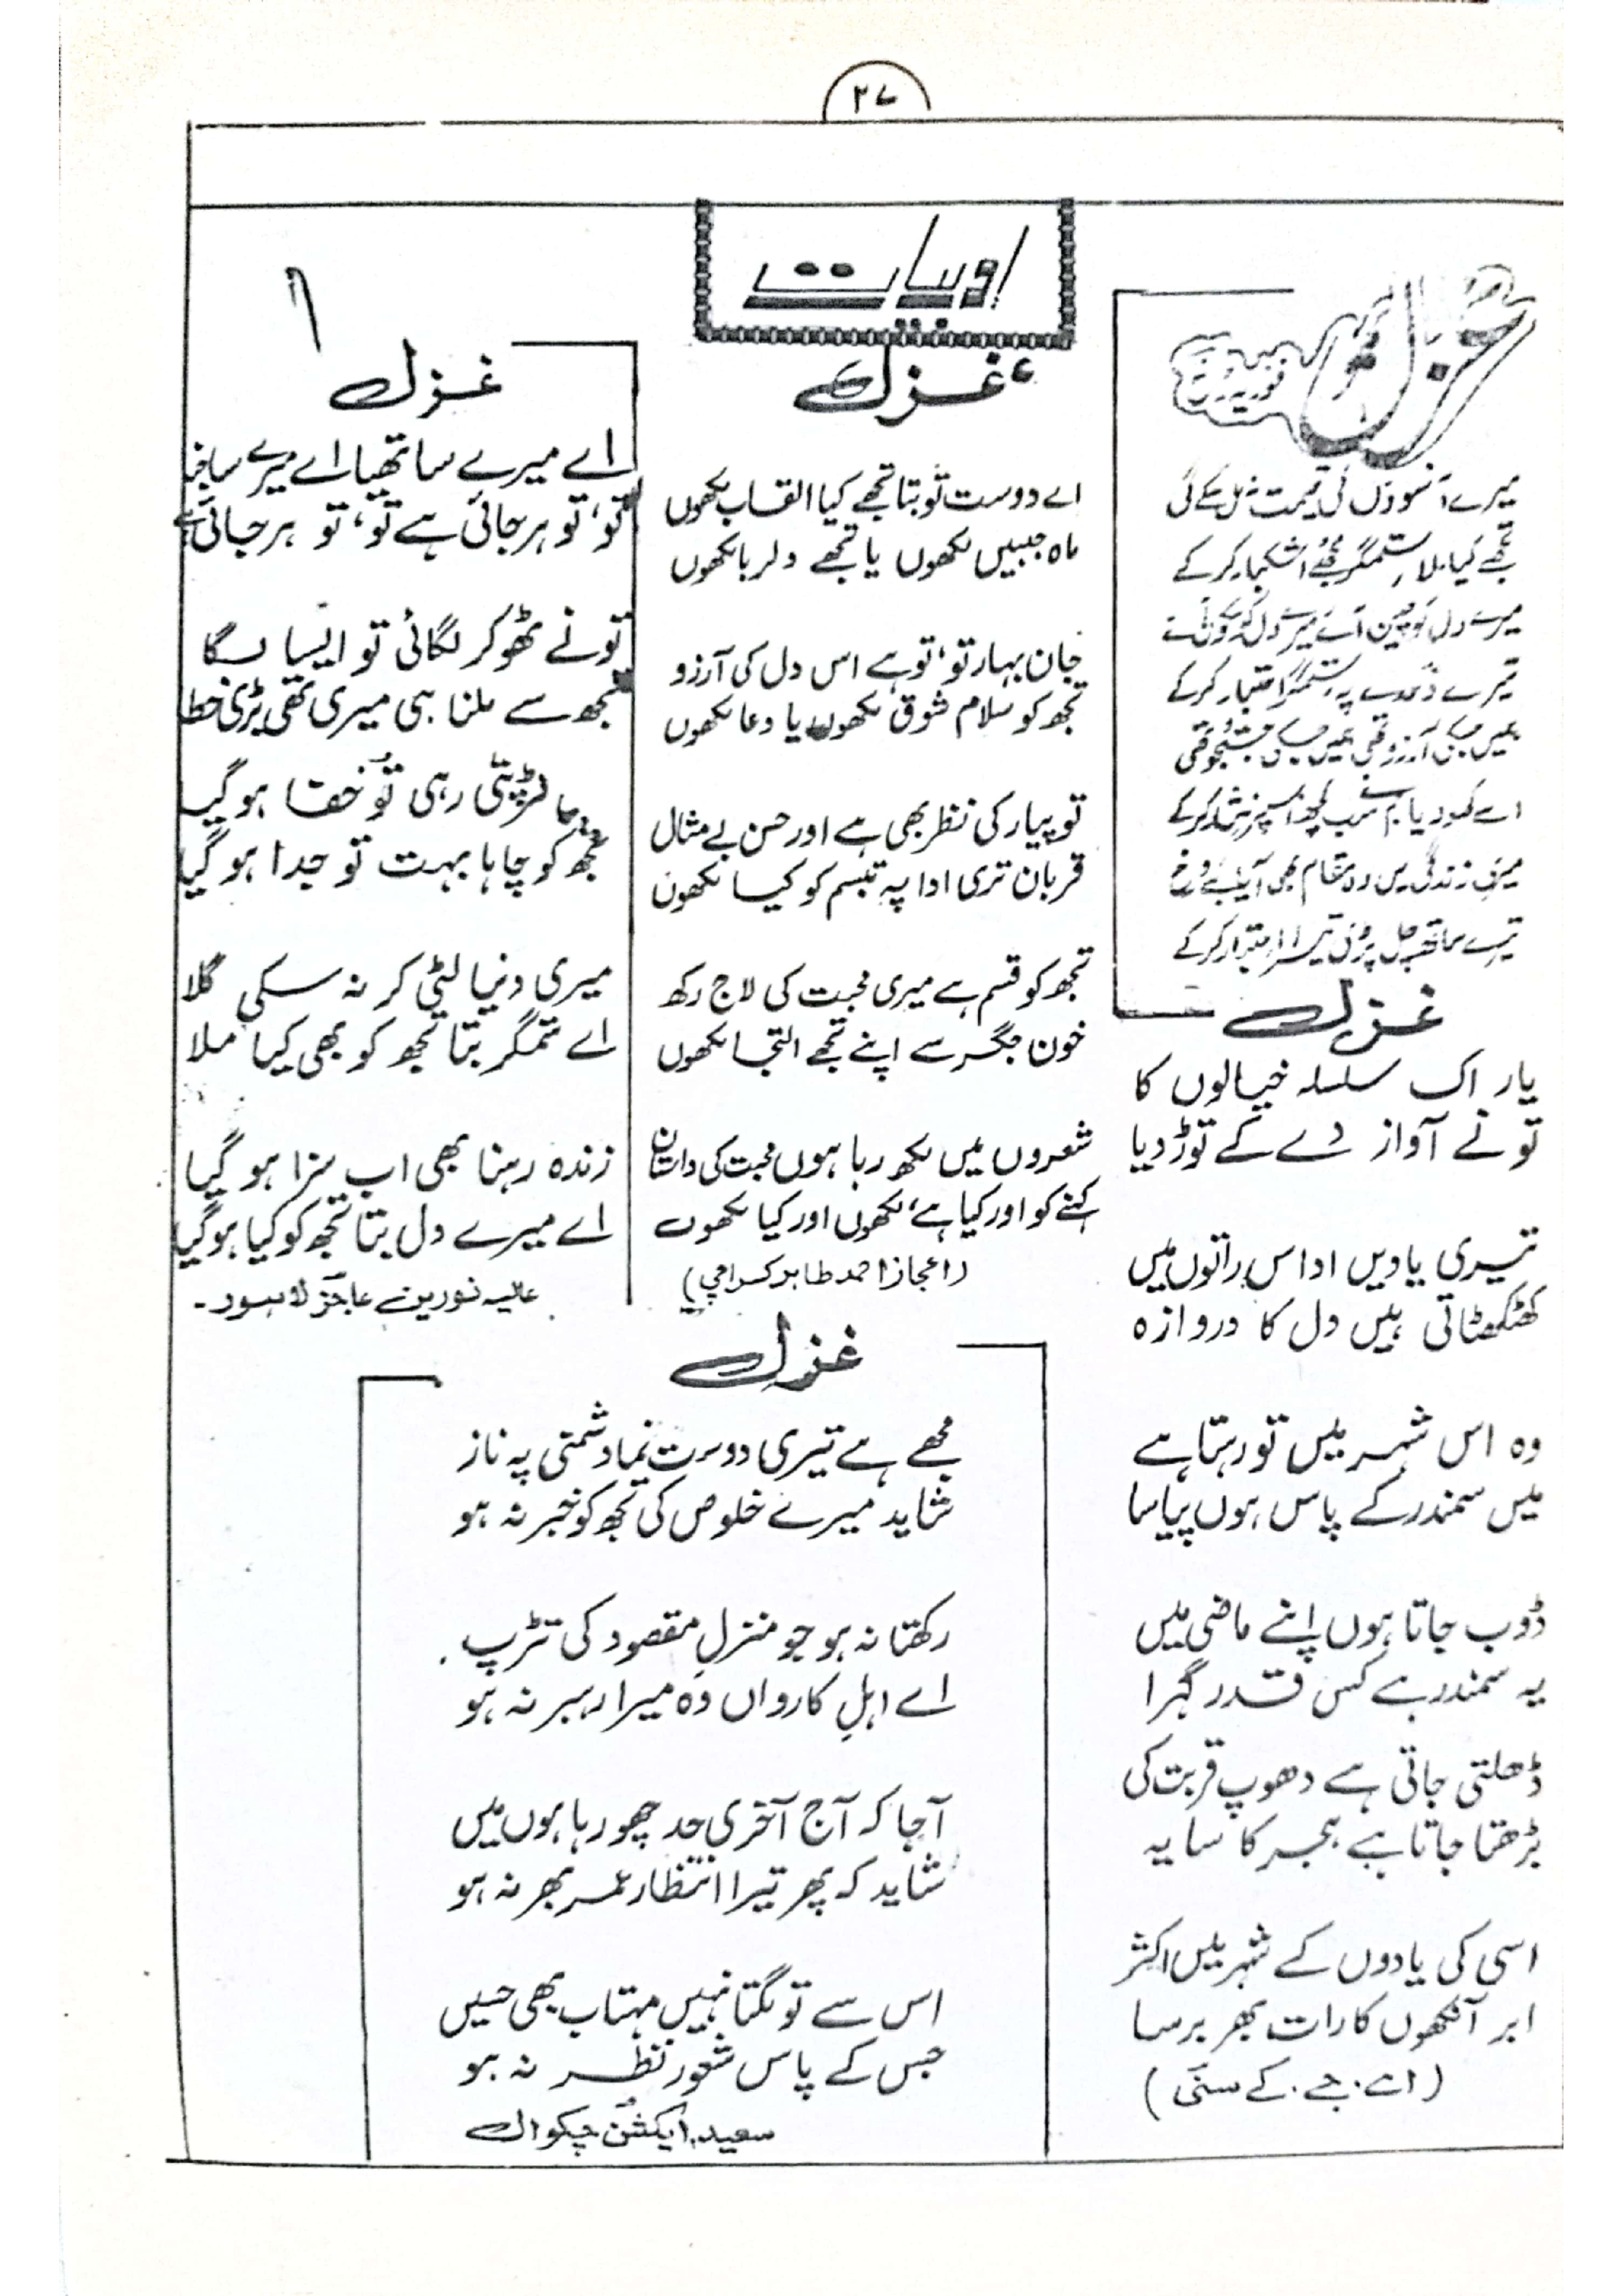 ۲۷
ادبیات
غزل
میرے آنسوؤں کی قیمت نہ مل سکے گی
تجھے کیا ملا ستمگر مجھے اشکبار کر کے
میرے دل کو چین آئے میرے دل
تیرے پہ ستمگر اعتبار کر کے
ہمیں جس کی آرزو تھی ہمیں جس کی جستجو تھی
اسے کھو دیا ہم نے سب کچھ نثار کر کے
میری زندگی میں وہ مقام بھی آیا ہے
تیرے ساتھ چل پڑی تیرا اعتبار کر کے
غزل
یار اک سلسلہ خیالوں کا
تو نے آواز دے کے توڑ دیا
تیری یادیں اداس راتوں میں
کھٹکھٹاتی ہیں دل کا دروازہ
وہ اس شہر میں تو رہتا ہے
میں سمندر کے پاس ہوں پیاسا
ڈوب جاتا ہوں اپنے ماضی میں
یہ سمندر ہے کس قدر گہرا
ڈھلتی جاتی ہے دھوپ قربت کی
بڑھتا جاتا ہے ہجر کا سایہ
اسی کی یادوں کے شہر میں اکثر
ابر آنکھوں کا رات بھر برسا
(اے۔ جے۔ کے سنی)
غزل
اے دوست تو بتا تجھے کیا القاب لکھوں
ماہ جبیں لکھوں یا تجھے دلربا لکھوں
جان بہار تو، تو ہے اس دل کی آرزو
تجھ کو سلام شوق لکھوں یا دعا لکھوں
تو پیار کی نظر بھی ہے اور حسن بے مثال
قربان تری ادا پہ تبسم کو کیا لکھوں
تجھ کو قسم ہے میری محبت کی لاج رکھ
خون جگر سے اپنے تجھے التجا لکھوں
شعروں میں لکھ رہا ہوں محبت کی داستان
کہنے کو اور کیا ہے، لکھوں اور کیا لکھوں
(اعجاز احمد طاہر کراچی)
غزل
اے میرے ساتھیا اے میرے ساتھیا
تو، تو ہرجائی ہے تو، تو ہرجائی ہے
تو نے ٹھوکر لگائی تو ایسا لگا
تجھ سے ملنا ہی میری تھی بڑی خطا
تڑپتی رہی تو خفا ہو گیا
تجھ کو چاہا بہت تو جدا ہو گیا
میری دنیا لٹی کر نہ سکی گلا
اے ستمگر بتا تجھ کو بھی کیا ملا
زندہ رہنا بھی اب سزا ہو گیا
اے میرے دل بتا تجھ کو کیا ہو گیا
عالیہ نورین عاجز لاہور۔
غزل
مجھے ہے تیری دوست نما دشمنی پہ ناز
شاید میرے خلوص کی تجھ کو خبر نہ ہو
رکھتا نہ ہو جو منزلِ مقصود کی تڑپ
اے اہلِ کارواں وہ میرا رہبر نہ ہو
آ جا کہ آج آخری حد چھو رہا ہوں میں
شاید کہ پھر تیرا انتظار عمر بھر نہ ہو
اس سے تو لگتا نہیں مہتاب بھی حسیں
جس کے پاس شعور نظر نہ ہو
سعید ایکشن چکوال